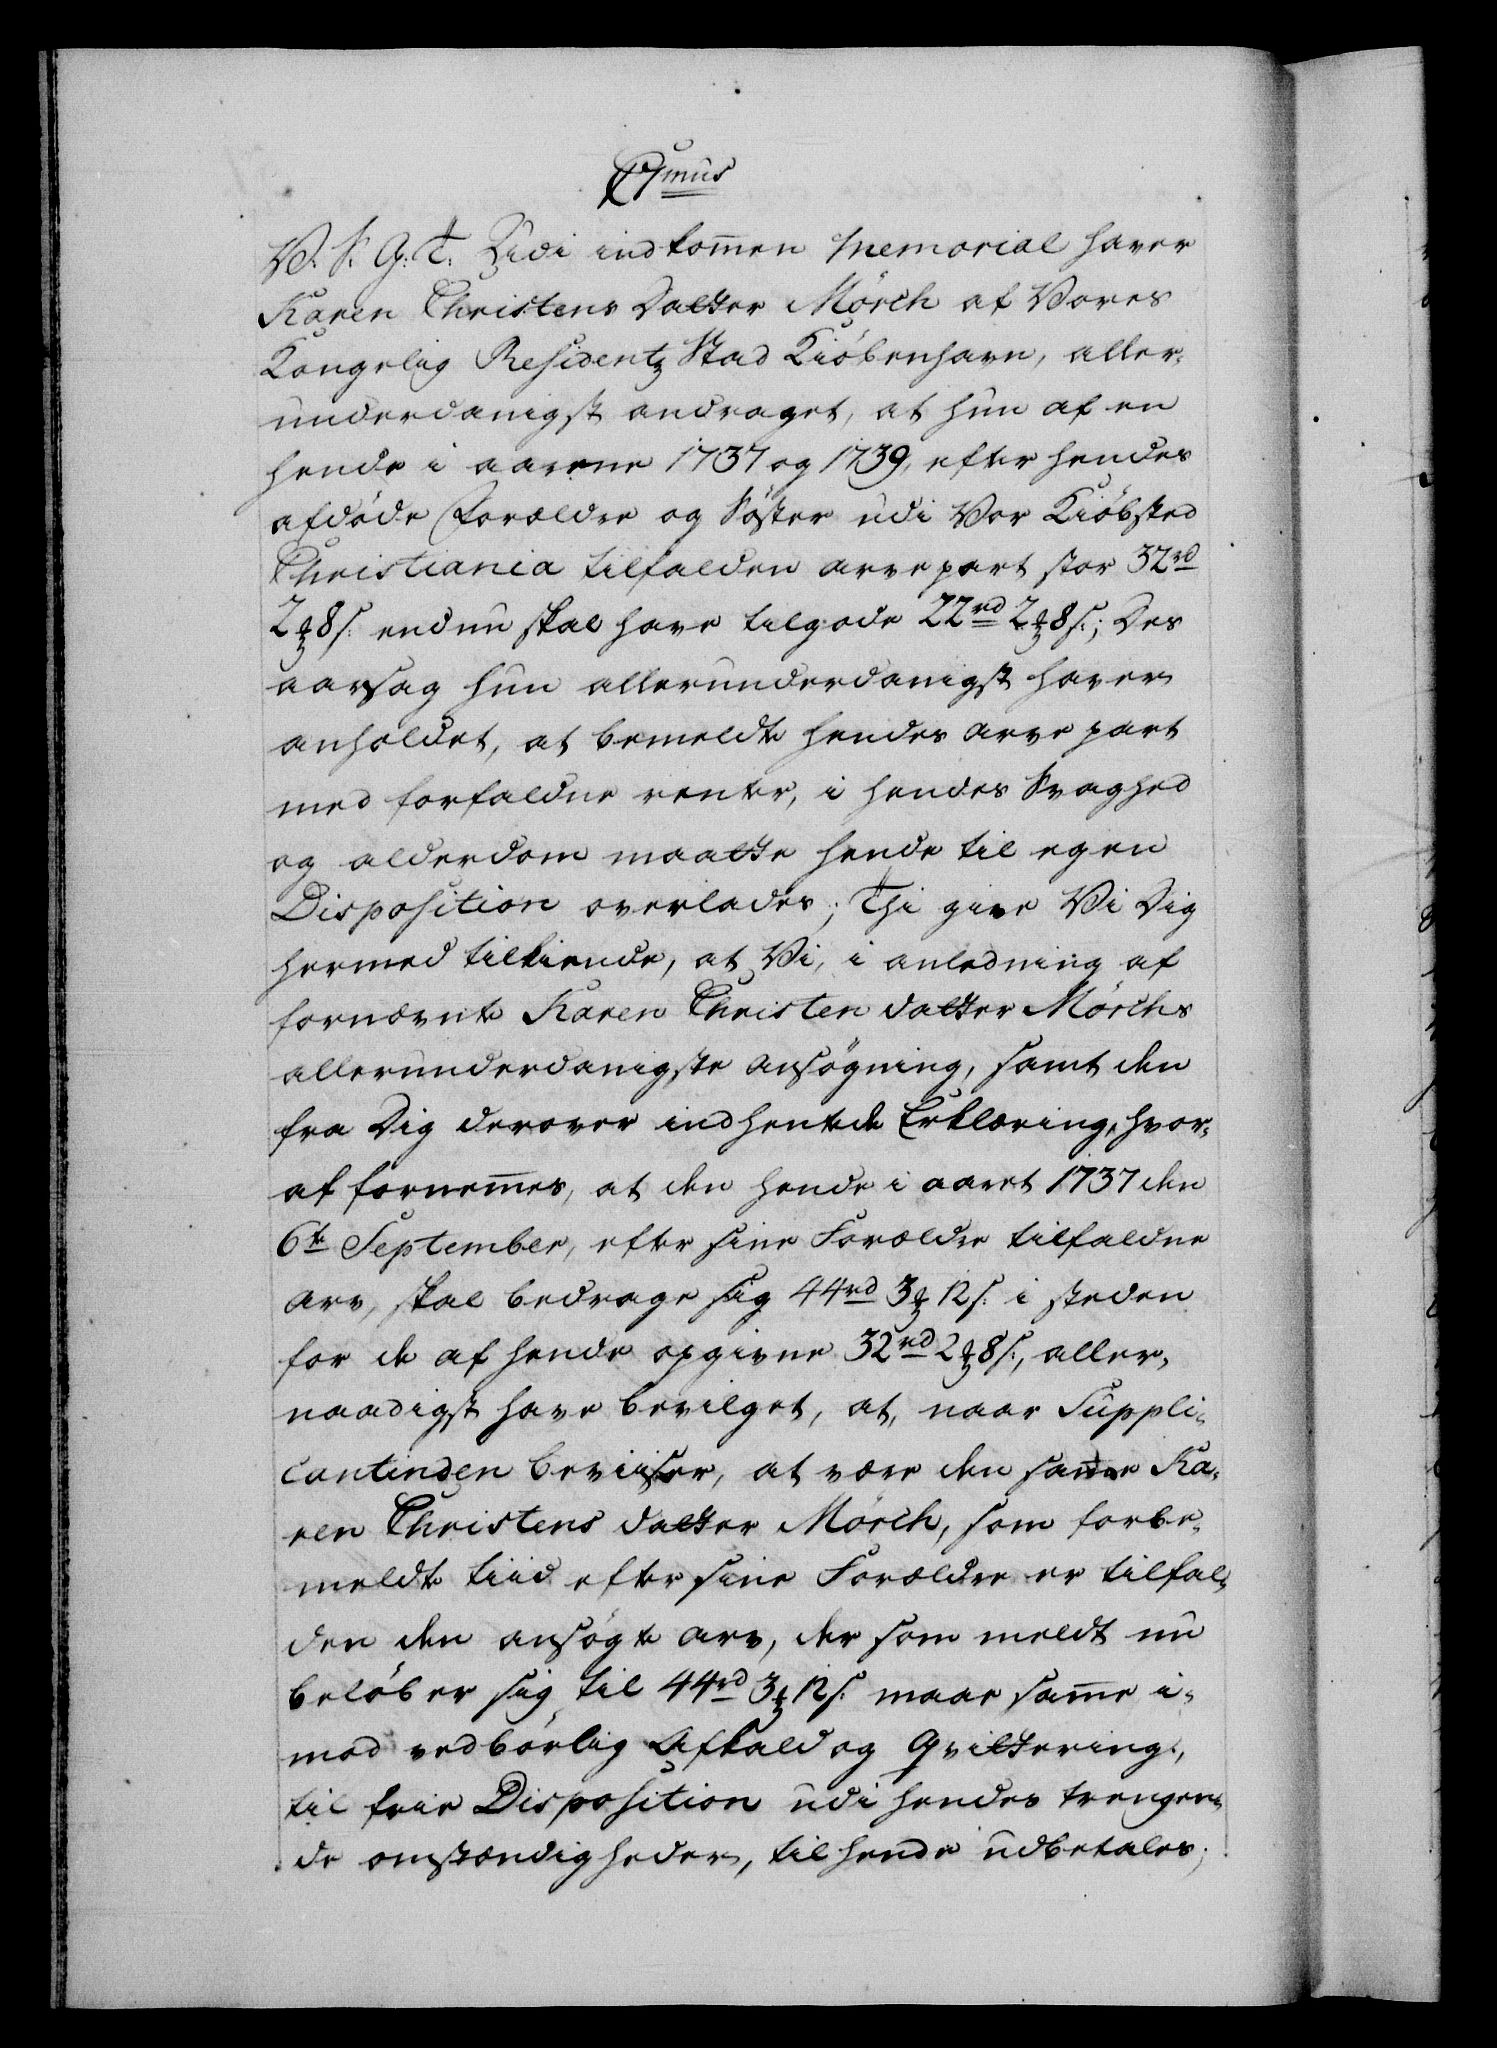 C 7mus
V. S. G. T. Udi indkom̄en Memorial haver
Karen Christens Datter Mörch af Vores
Kongelig Residentz Stad Kiöbenhavn, aller-
underdanigst andraget, at hun af en
hende i aarene 1737 og 1739, efter hendes
afdöde Forældre og Söster udi Vor Kiöbsted
Christiania tilfalden arvepart stor 32 rd
2 ꝳ 8 s: endnu skal have tilgode 22 rd 2 ꝳ 8 s:; Des
aarsag hun allerunderdanigst haver
anholdet, at bemeldte hendes arve part
med forfaldne renter, i hendes Svaghed
og alderdom maatte hende til egen
Disposition overlades; Thi give Vi Dig
hermed tilkiende, at Vi, i anledning af
fornævnte Karen Christen datter Mörchs
allerunderdanigste ansögning, samt den
fra Dig derover indhentede Erklæring, hvor-
af fornem̄es, at den hende i aaret 1737 den
6te September, efter sine Forældre tilfaldne
arv, skal bedrage sig 44 rd 3 ꝳ 12 s: i steden
for de af hende opgivne 32 rd 2 ꝳ 8 s:, aller-
naadigst have bevilget, at, naar Suppli-
cantinden beviiser, at være den sande Ka-
ren Christens datter Mörch, som forbe-
meldte tiid efter sine Forældre er tilfal-
den den ansögte arv, der som meldt nu
belöber sig til 44 rd 3 ꝳ 12 s: maae sam̄e i-
mod vedbörlig Afkald og Qvittering,
til frie Disposition udi hendes trængen-
de omstændigheder, til hende udbetales;